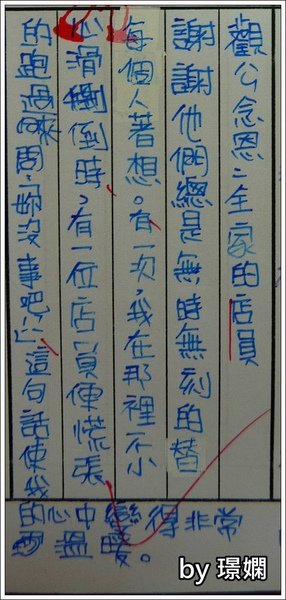 觀公念恩:全家的店員
謝謝他們總是無時無刻的替
每個人著想。有一次,我在那裡不小
心滑倒時,有一位店員便慌張
的跑過來問:「妳沒事吧!」這句話使我
的心中變得非常
溫暖。
by 璟嫻